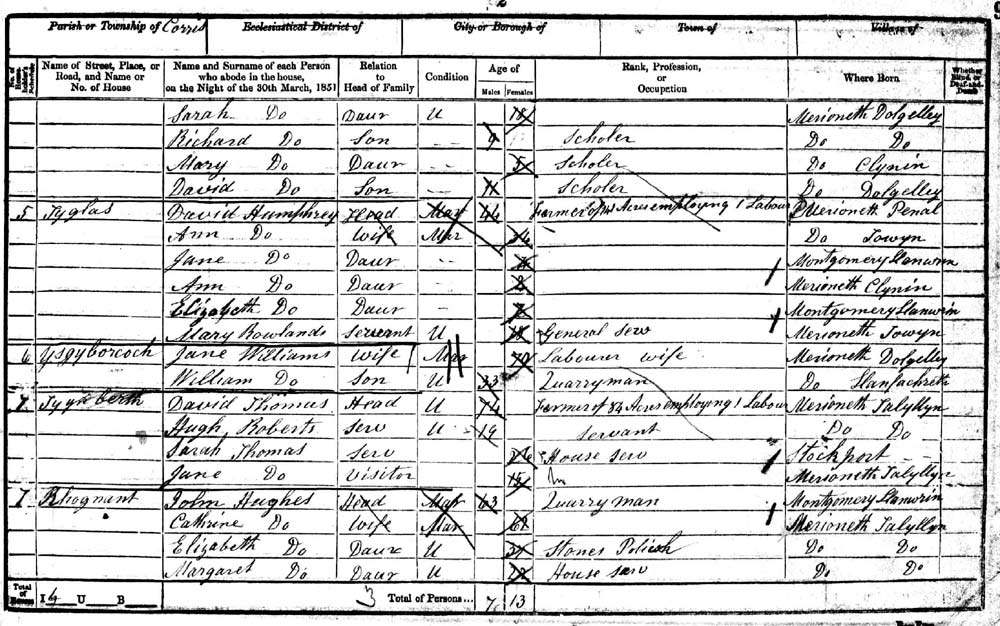 2
Parish or Township of Corris Ecclesiastical District of City or Borough of Town of Village of
No. of House-holder's Schedule Name of Street, Place, or Road, and Name or No. of House Name and Surname of each Person who abode in the house, on the Night of the 30th March, 1851 Relation to Head of Family Condition Age of Males Females Rank, Profession, or Occupation Where Born Whether Blind, or Deaf-and-Dumb
Sarah Do Daur U 18 Merioneth Dolgelley
Richard Do Son -- 9 Scholer Do Do
Mary Do Daur -- 5 Scholer Do Clynin
David Do Son -- 11 Scholer Do Dolgelley
5 Tyglas David Humphrey Head Mar 44 Farmer of Acres employing 1 Labour Merioneth Penal
Ann Do Wife Mar Do Towyn
Jane Do Daur - Montgomery Llanwrin
Ann Do Daur - 8 Merioneth Clynin
Elizabeth Do Daur - Montgomery Llanwrin
Mary Rowlands Servant U 18 General Serv Merioneth Towyn
6 Ysgyborcoch Jane Williams Wife Mar 70 Labourer wife Merioneth Dolgelley
William Do Son U 33 Quarryman Do Llanfachreth
7 David Thomas Head U 74 Farmer of 84 Acres employing 1 Labour Merioneth Talyllyn
Hugh Roberts Serv U 19 servant Do Do
Sarah Thomas Serv 26 House serv Stockport - -
Jane Do Visitor 15 Merioneth Talyllyn
Rhognant John Hughes Head Mar 63 Quarryman Montgomery Llanwrin
Cathrine Do Wife Mar Merioneth Talyllyn
Elizabeth Do Daur U Stones Polish Do Do
Margaret Do Daur U 22 House serv Do Do
Total of Houses I 4 U B 3 Total of Persons... 7 13